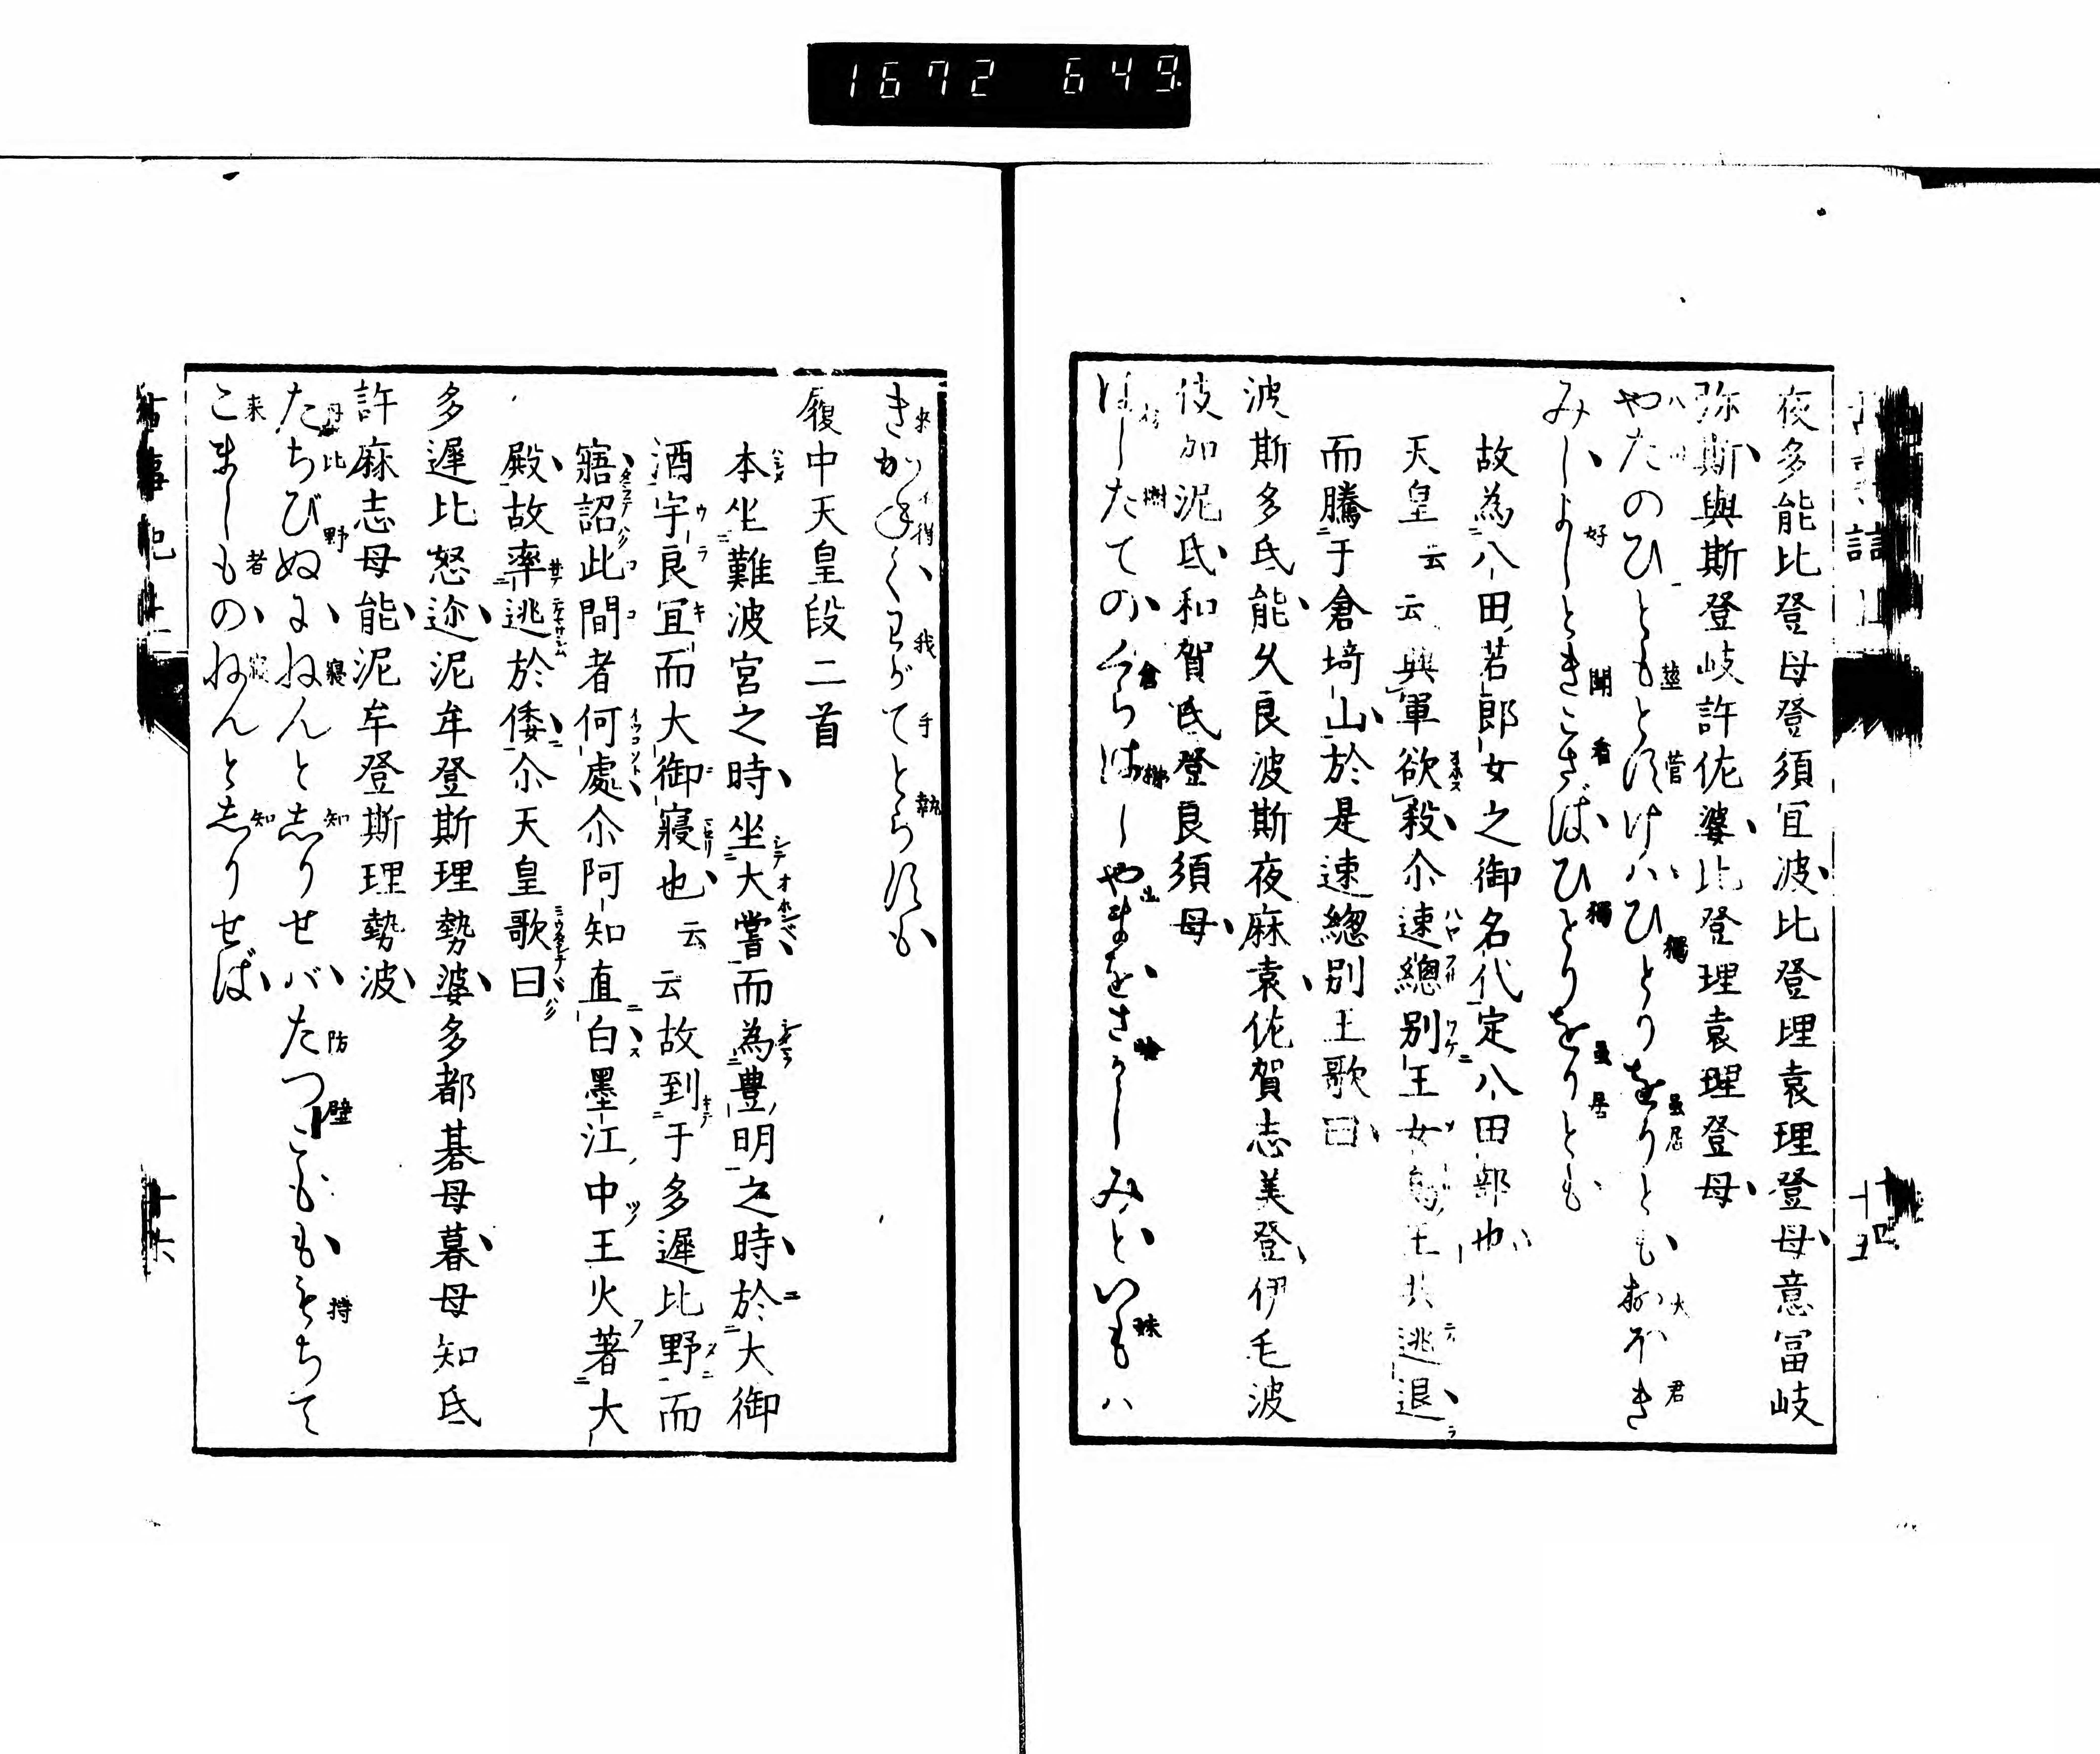 1672 649
夜多能比登母登須冝波比登理袁理登母意冨岐
弥斯與斯登岐許佐婆比登理袁理登母
やたのひともとすけハひとりをりともおほき
みしよしときこさばひとりをりとも
故為八田若郎女之御名代定八田部也
天皇云云興軍欲殺尒速總別王女鳥王共逃退
而騰于倉埼山於是速總別王歌曰
波斯多氐能久良波斯夜麻袁佐賀志美登伊毛波
伎加泥氐和賀氐登良須母
はしたてのくらはしやまをさかしみといもハ
きかねてわがてとらすも
履中天皇段二首
本坐難波宮之時坐大嘗而為豊明之時於大御
酒宇良冝而大御寢也云云故到于多遲比野而
寤詔此間者何處尒阿知直白墨江中王火著大
殿故率逃於倭尒天皇歌曰
多遲比怒迩泥牟登斯理勢婆多都碁母暮母知氐
許麻志母能泥牟登斯理勢波
たちびぬにねんと志りせバたつごももちて
こましものねんと志りせば
古事記
十六